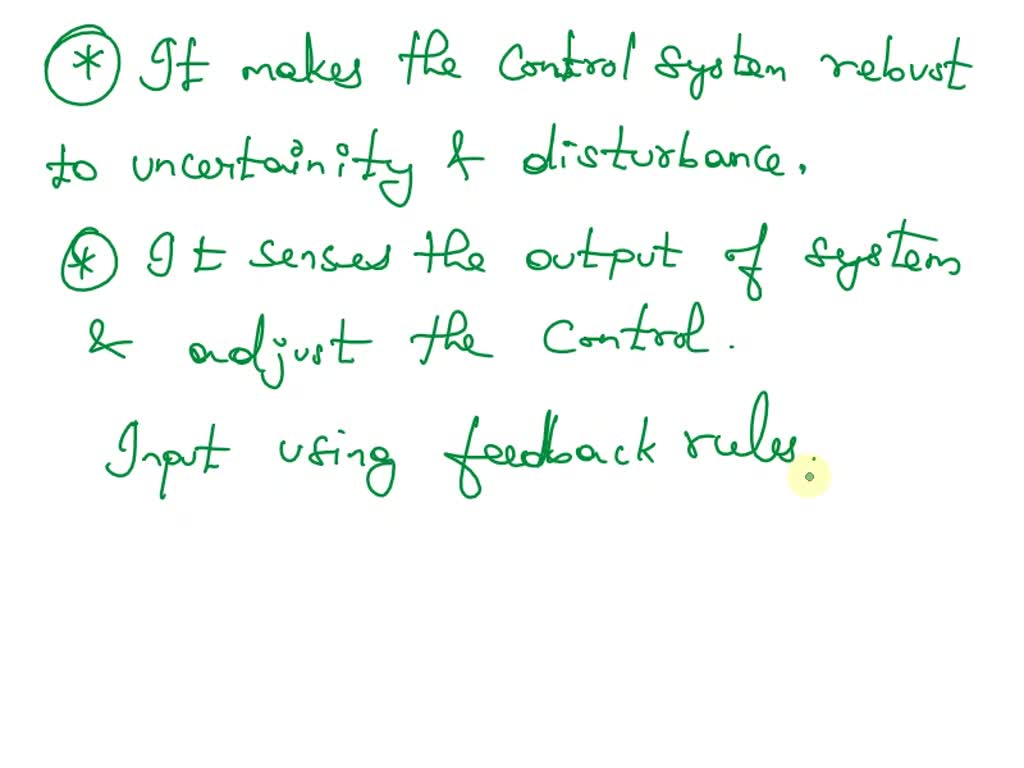 * It makes the control system rebust
to uncertainity & disturbance.
* It senses the output of system
& adjust the control.
Input using feedback rules.